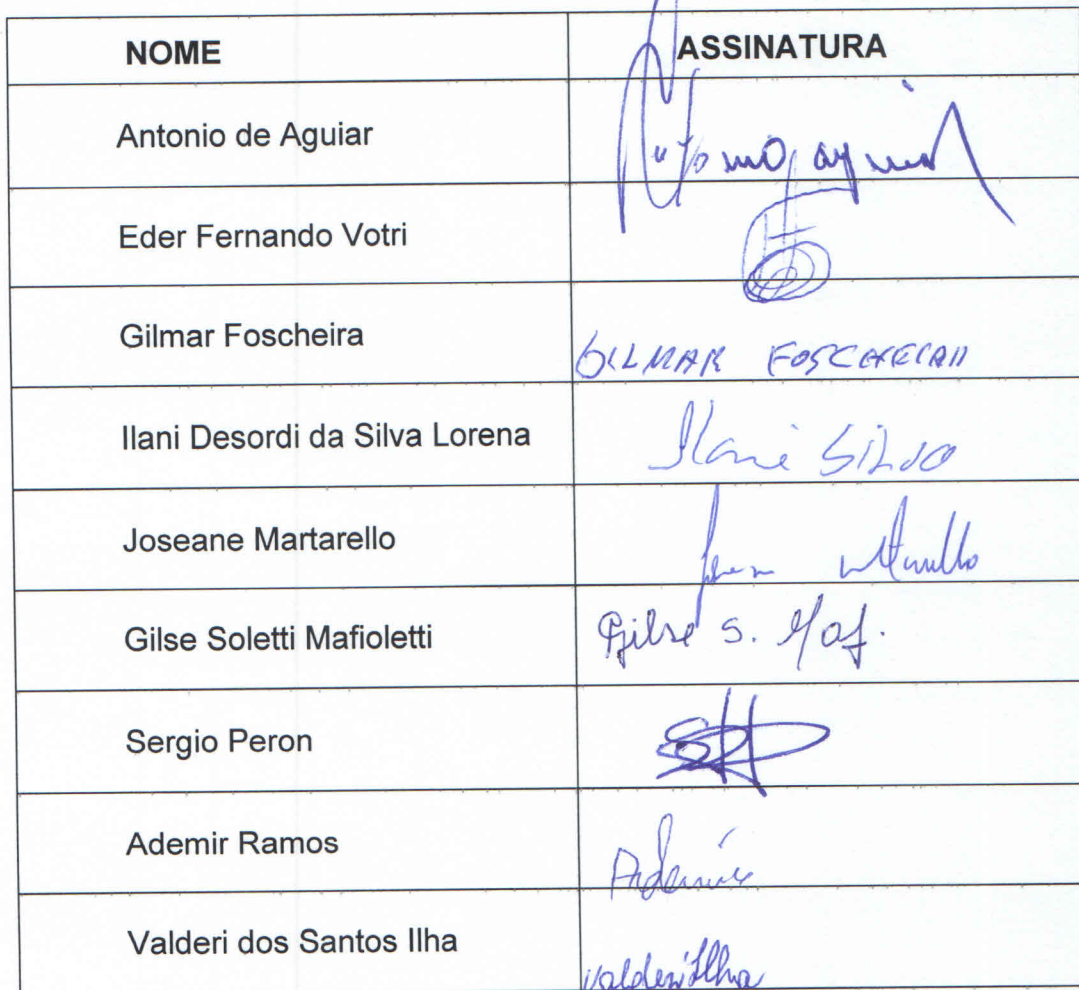 NOME ASSINATURA
Antonio de Aguiar
Eder Fernando Votri
Gilmar Foscheira GILMAR FOSCHEIRA
Ilani Desordi da Silva Lorena Ilani Silva
Joseane Martarello
Gilse Soletti Mafioletti Gilse S. Maf.
Sergio Peron
Ademir Ramos Ademir
Valderi dos Santos Ilha Valderi Ilha